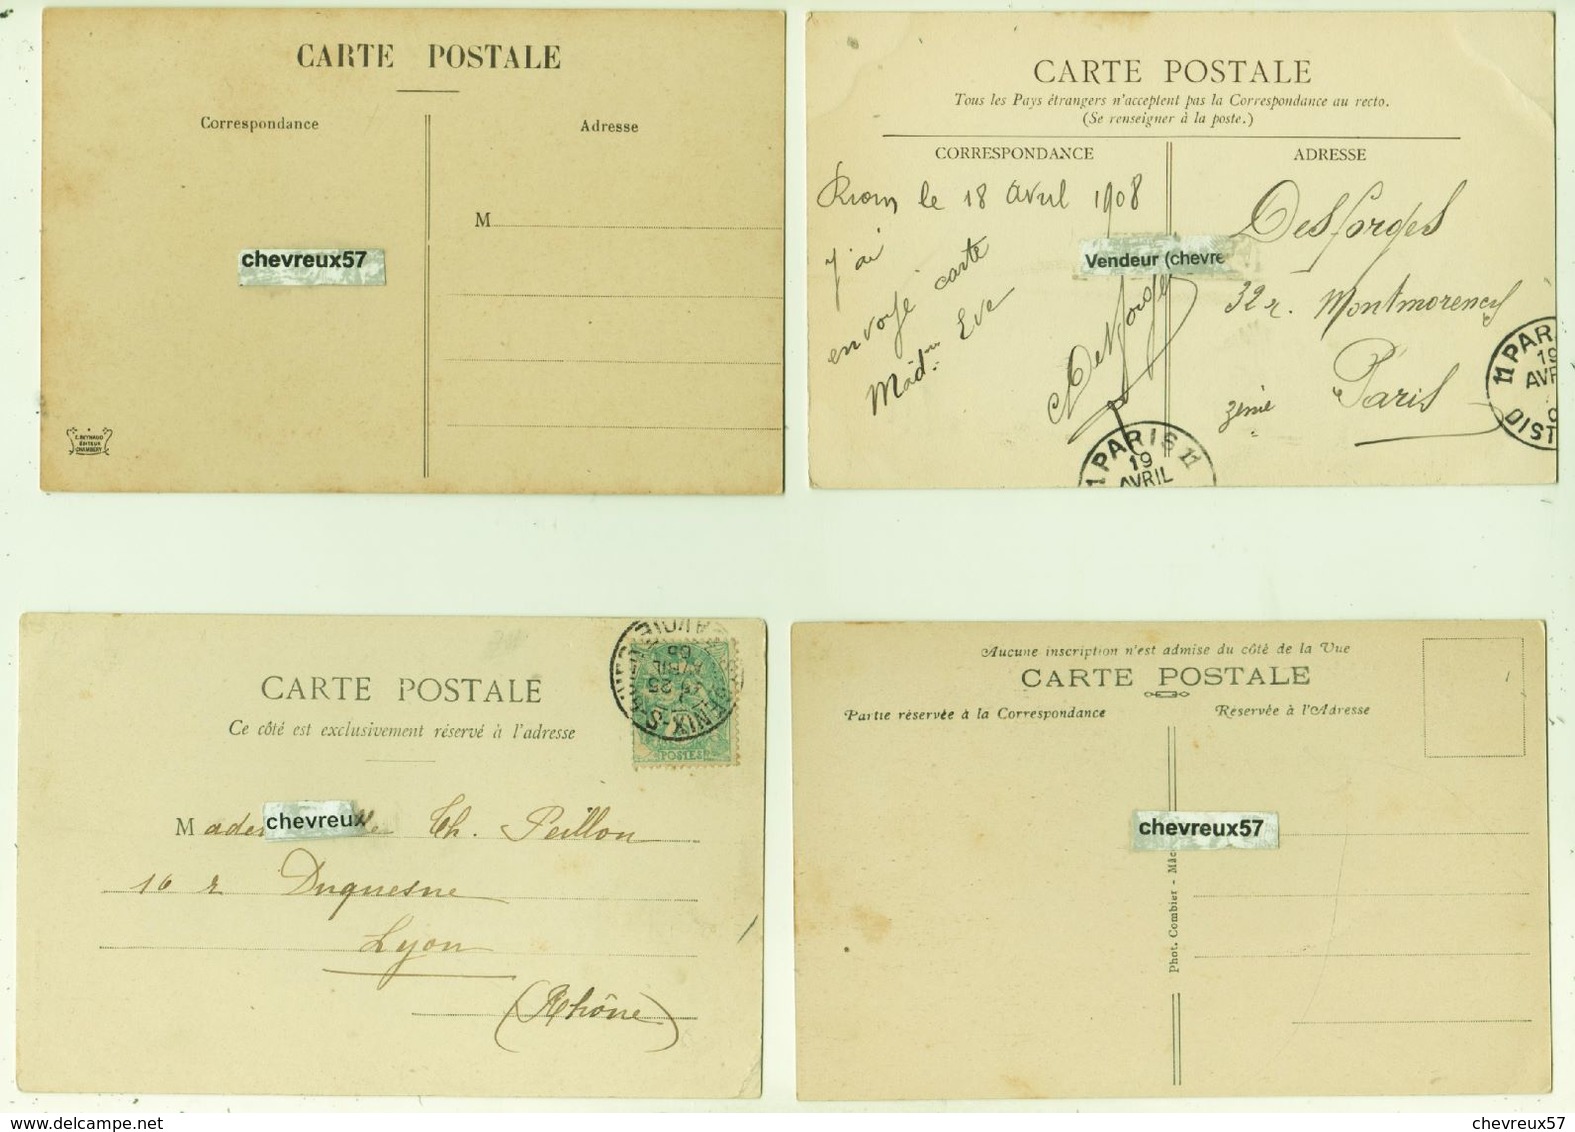 CARTE POSTALE
Correspondance
Adresse
M
chevreux57
E. REYNAUD
EDITEUR
CHAMBERY
CARTE POSTALE
Tous les Pays étrangers n'acceptent pas la Correspondance au recto.
(Se renseigner à la poste.)
CORRESPONDANCE
ADRESSE
Riom le 18 avril 1908
J'ai
envoyé carte
Mad^me Eve
Desforges
Vendeur (chevre
Desforges
32 r. Montmorency
Paris
3ème
11 PARIS 11
19
AVRIL
11 PAR
19
AVR
DIST
CARTE POSTALE
Ce côté est exclusivement réservé à l'adresse
POSTES
Mader lle Th. Peillon
chevreux
16 r Duquesne
Lyon
(Rhône)
Aucune inscription n'est admise du côté de la Vue
CARTE POSTALE
Partie réservée à la Correspondance
Réservée à l'Adresse
chevreux57
Phot. Combier - Mâc
delcampe.net
chevreux57